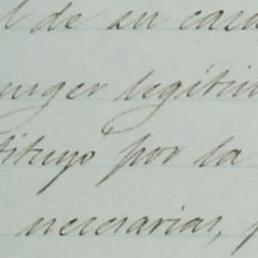 de su casa
muger legitim
tituyo por la
necesarias,